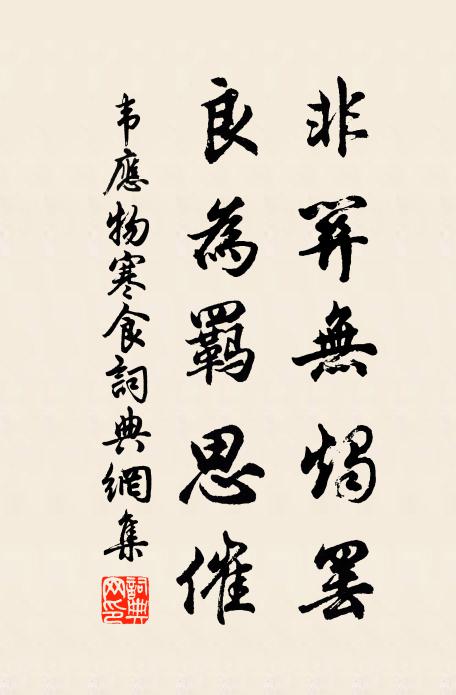 非關無燭罷
良為羈思催
韦應物寒食詞典網集
詞典
网印